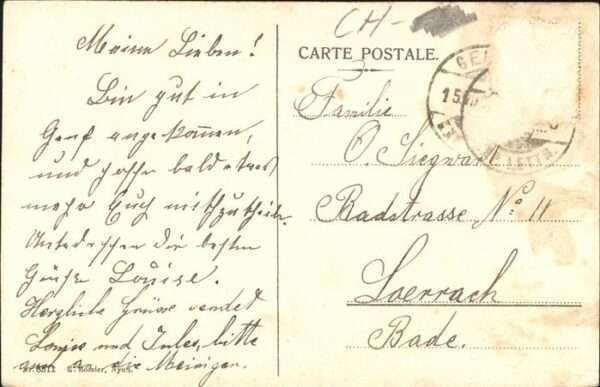 Meine Lieben!
Bin gut in
Genf angekommen,
und hoffe bald etwas
mehr Euch mitzutheilen.
Unterdessen die besten
Grüsse Louise.
Herzliche Grüsse sendet
Louise und Jules, bitte
an die Meinigen.
CH-
CARTE POSTALE.
Familie
O. Siegwart
Badstrasse No: 11
Loerrach
Bade.
GE
15
LETTR.